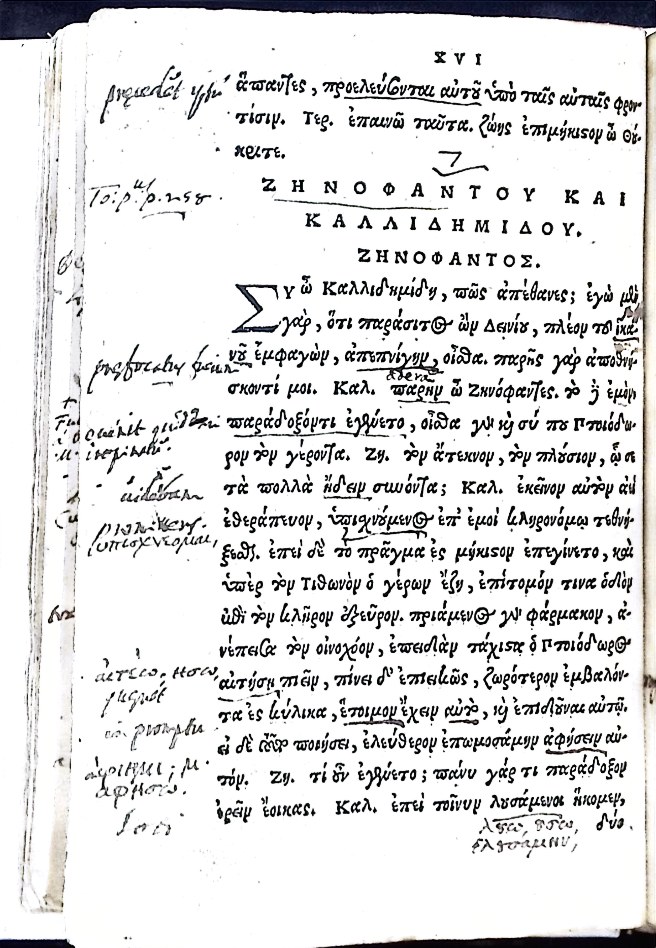 XVI
ἅπαντες, προελεύσονται αὐτοῦ ὑπὸ ταῖς αὐταῖς φρον-
τίσιν. Τερ. ἐπαινῶ ταῦτα. ζώης ἐπιμήκιστον ὦ Θού-
κριτε.
7
ΖΗΝΟΦΑΝΤΟΥ ΚΑΙ
ΚΑΛΛΙΔΗΜΙΔΟΥ.
ΖΗΝΟΦΑΝΤΟΣ.
Σὺ ὦ Καλλιδημίδη, πῶς ἀπέθανες; ἐγὼ μὲν
γάρ, ὅτι παράσιτος ὢν Δεινίου, πλέον τοῦ ἱκα-
νοῦ ἐμφαγὼν, ἀπεπνίγην, οἶσθα. παρῆς γὰρ ἀποθνή-
σκοντί μοι. Καλ. παρῆν ὦ Ζηνόφαντες. τὸ δὲ ἐμὸν
παράδοξόν τι ἐγένετο, οἶσθα γὰρ καὶ σύ που Πτοιόδω-
ρον τὸν γέροντα. Ζη. τὸν ἄτεκνον, τὸν πλούσιον, ᾧ σε
τὰ πολλὰ ᾔδειν συνόντα; Καλ. ἐκεῖνον αὐτὸν ἀεὶ
ἐθεράπευον, ὑπισχνούμενος ἐπ' ἐμοὶ κληρονόμῳ τεθνή-
ξεσθαι. ἐπεὶ δὲ τὸ πρᾶγμα ἐς μήκιστον ἐπεγίνετο, καὶ
ὑπὲρ τὸν Τιθωνὸν ὁ γέρων ἔζη, ἐπίτομόν τινα ὁδὸν
ἐπὶ τὸν κλῆρον ἐξεῦρον. πριάμενος γὰρ φάρμακον, ἀ-
νέπεισα τὸν οἰνοχόον, ἐπειδὰν τάχιστα ὁ Πτοιόδωρος
αἰτήσῃ πιεῖν, πίνει δ' ἐπιεικῶς, ζωρότερον ἐμβαλόν-
τα ἐς κύλικα, ἕτοιμον ἔχειν αὐτὸ, καὶ ἐπιδοῦναι αὐτῷ.
εἰ δὲ τοῦτο ποιήσει, ἐλεύθερον ἐπωμοσάμην ἀφήσειν αὐ-
τόν. Ζη. τί οὖν ἐγένετο; πάνυ γάρ τι παράδοξον
ἐρεῖν ἔοικας. Καλ. ἐπεὶ τοίνυν λουσάμενοι ἥκομεν,
δύο